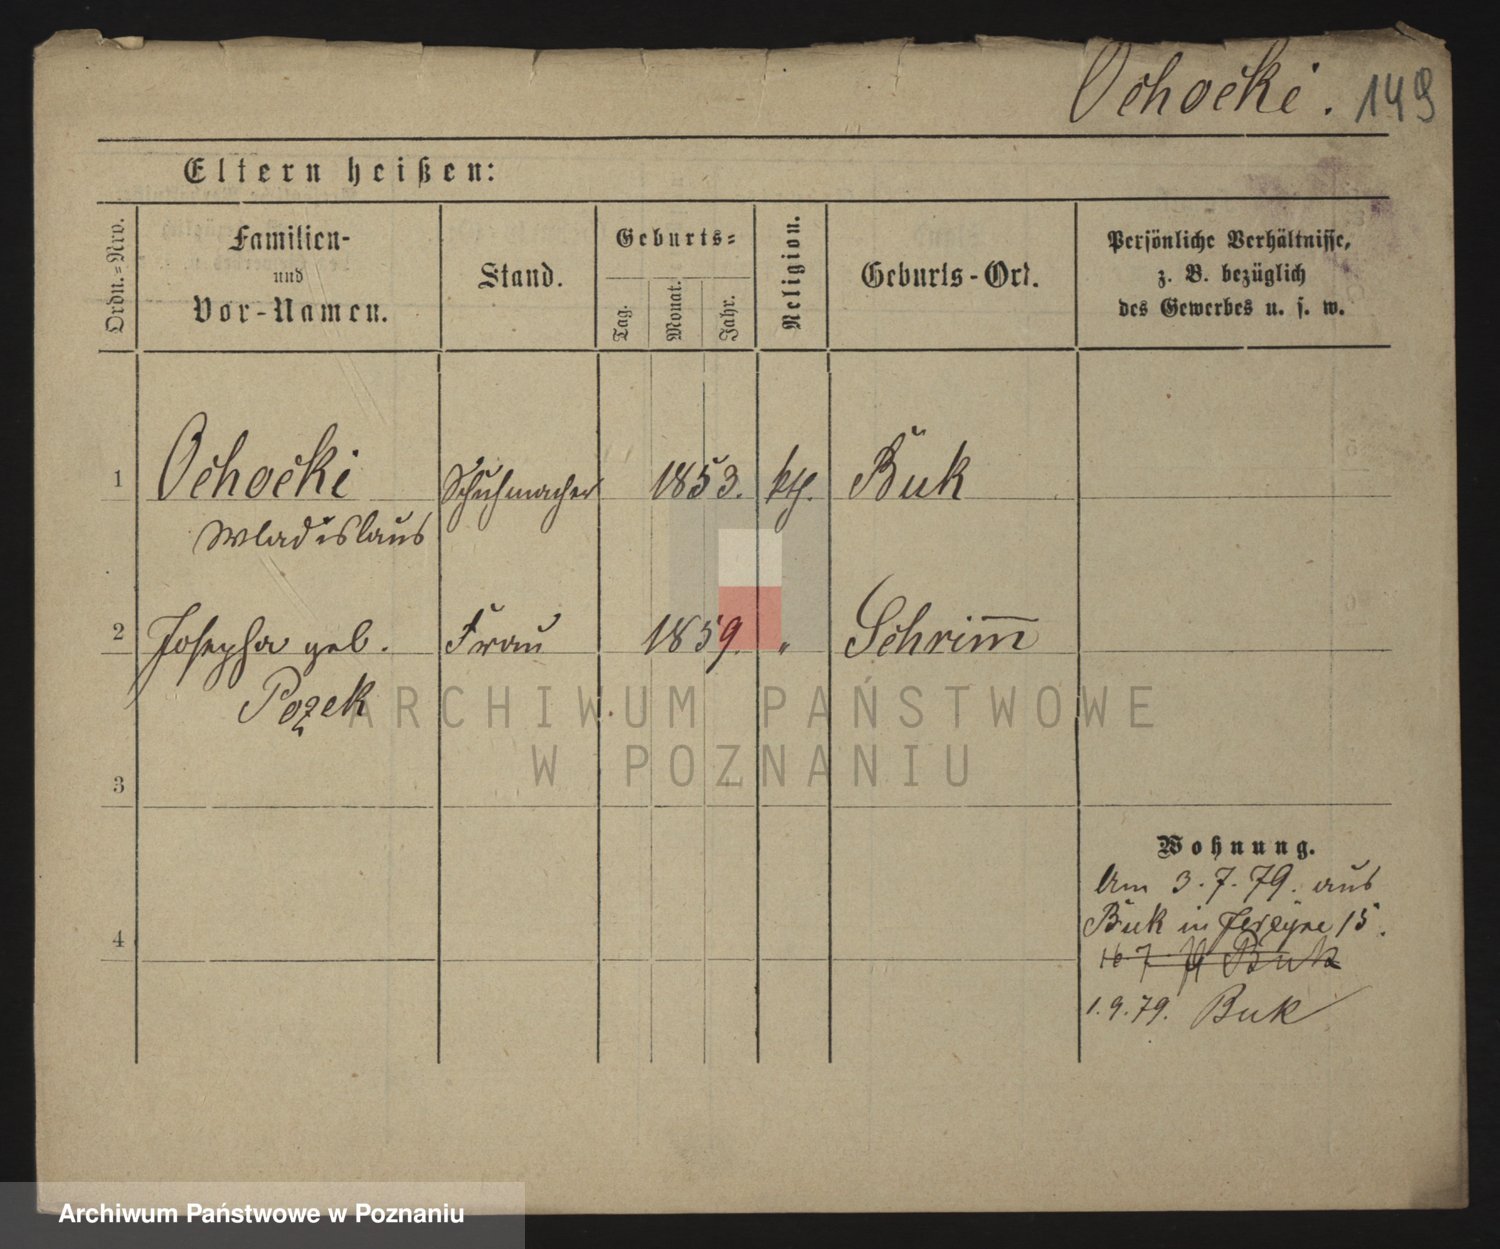 Ochocki. 149
Eltern heißen:
Ordn.=Nro.
Familien-
und
Vor-Namen.
Stand.
Geburts=
Tag.
Monat.
Jahr.
Religion.
Geburts-Ort.
Persönliche Verhältnisse,
z. B. bezüglich
des Gewerbes u. s. w.
1 Ochocki Schuhmacher 1853. kth. Buk
Wladislaus
2 Josepha geb. Frau 1859. " Schrim̅
Pozek
ARCHIWUM PAŃSTWOWE
W POZNANIU
3
Wohnung.
Am 3.7.79. aus
Buk in 15.
4
16 7 Buk
1.9.79. Buk
Archiwum Państwowe w Poznaniu